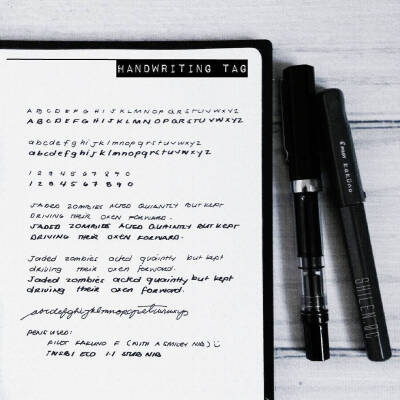 HANDWRITING TAG
A B C D E F G H I J K L M N O P Q R S T U V W X Y Z
A B C D E F G H I J K L M N O P Q R S T U V W X Y Z
abcdefghijklmnopqrstuvwxyz
abcdefghijklmnopqrstuvwxyz
1 2 3 4 5 6 7 8 9 0
1 2 3 4 5 6 7 8 9 0
JADED ZOMBIES ACTED QUAINTLY BUT KEPT
DRIVING THEIR OXEN FORWARD.
JADED ZOMBIES ACTED QUAINTLY BUT KEPT
DRIVING THEIR OXEN FORWARD.
Jaded zombies acted quaintly but kept
driving their oxen forward.
Jaded zombies acted quaintly but kept
driving their oxen forward.
PENS USED:
PILOT KAKUNO F (WITH A SMILEY NIB)
TWSBI ECO 1.1 STUB NIB
PILOT KAKUNO